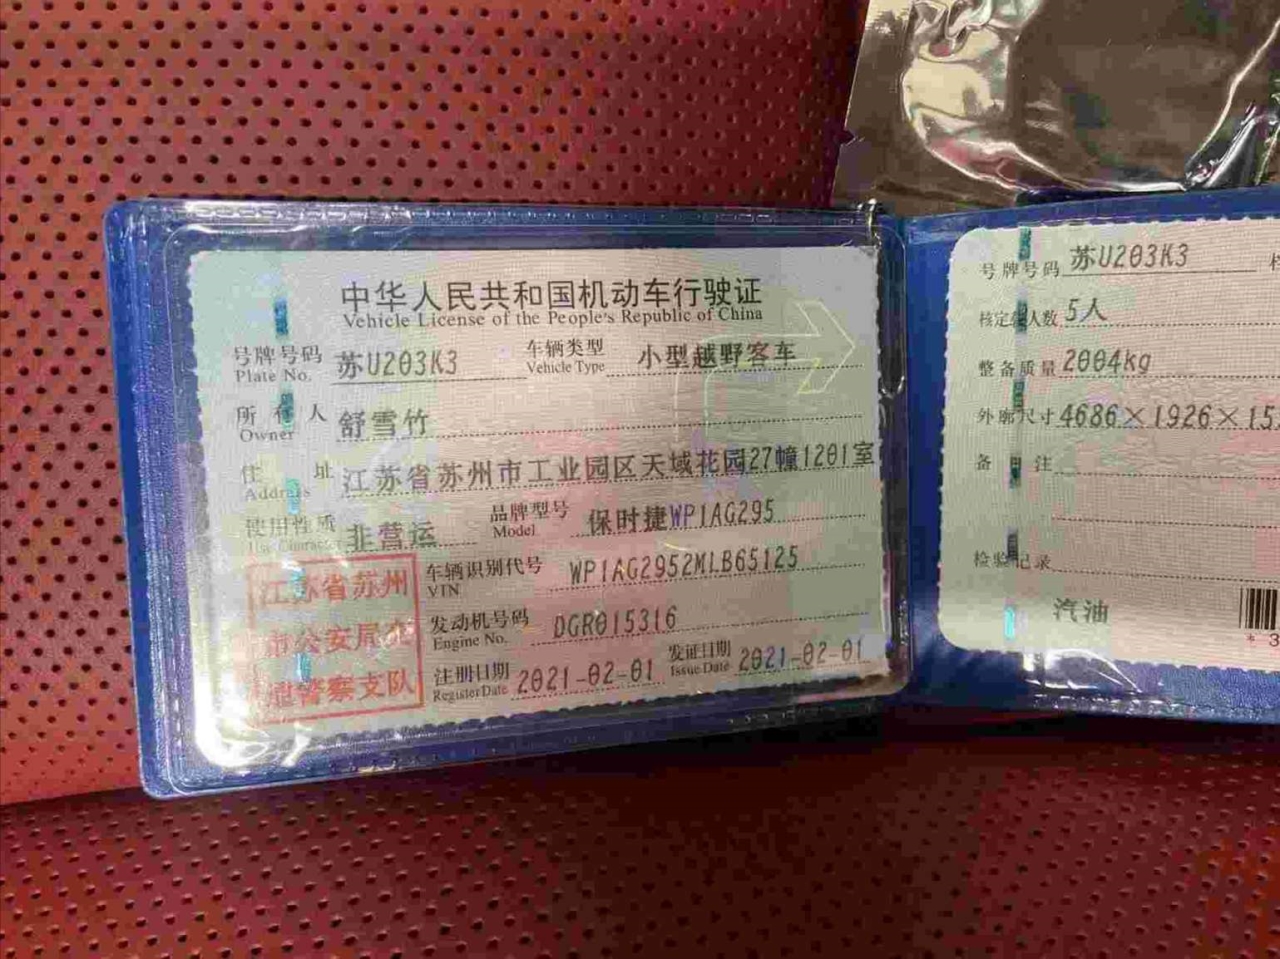 中华人民共和国机动车行驶证
Vehicle License of the People's Republic of China
号牌号码 苏U203K3 车辆类型 小型越野客车
Plate No. Vehicle Type
所有人 舒雪竹
Owner
住址 江苏省苏州市工业园区天域花园27幢1201室
Address
使用性质 非营运 品牌型号 保时捷WP1AG295
Use Character Model
车辆识别代号 WP1AG2952MLB65125
VIN
发动机号码 DGR015316
Engine No.
注册日期 2021-02-01 发证日期 2021-02-01
Register Date Issue Date
江苏省苏州
市公安局交
通警察支队
号牌号码 苏U203K3
核定载人数 5人
整备质量 2004kg
外廓尺寸 4686×1926×15
备注
检验记录
汽油
* 3